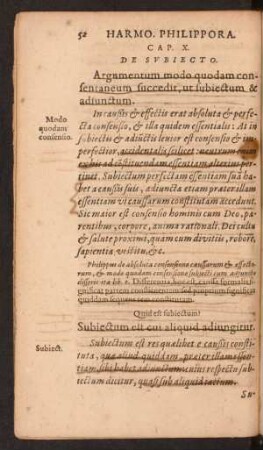 52 HARMO. PHILIPPORA.
CAP. X.
DE SVBIECTO.
Argumentum modo quodam con-
sentaneum succedit, ut subiectum &
adiunctum.
Modo
quodam
consentiu.
In caussis & effectis erat absoluta & perfe-
cta consensio, & illa quidem essentialis: At in
subiectis & adiunctis levior est consensio &
imperfectior, accidentalis scilicet
ad constituendam essentiam alterius per-
tinet. Subiectum perfectam essentiam suã ha-
bet a caussis suis, adiuncta etiam præter illam
essentiam vi caussarum constitutam accedunt.
Sic maior est consensio hominis cum Deo, pa-
rentibus, corpore, anima rationali. Dei cultu
& salute proximi, quàm cum divitiis, robore,
sapientia, victu, &c.
Philippus de absoluta consensione caussarum & effecto-
rum, & modo quodam consensione subjecti cum adjuncto
disserit
quidam sequitur rem constitutam.
Quid est subiectum?
Subiectum est cui aliquid adiungitur.
Subiect.
Subiectum est res qualibet e caussis consti-
tuta, quæ aliud quiddam, præter illam essen-
tiam, sibi habet adiunctum: cuius respectu sub-
iectum dicitur, quasi sub aliquid iactum.